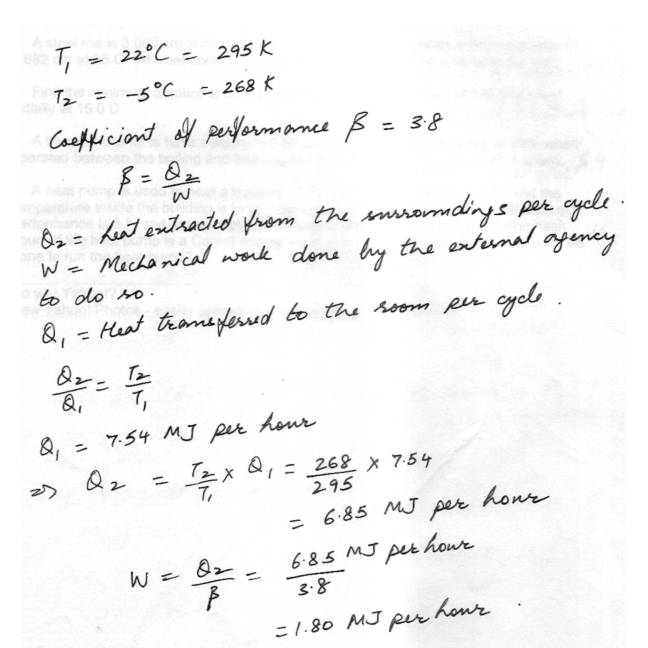 T₁ = 22°C = 295 K
T₂ = -5°C = 268 K
Coefficient of performance β = 3.8
β = Q₂/W
Q₂ = heat extracted from the surroundings per cycle.
W = Mechanical work done by the external agency
to do so.
Q₁ = Heat transferred to the room per cycle.
Q₂/Q₁ = T₂/T₁
Q₁ = 7.54 MJ per hour
⇒ Q₂ = T₂/T₁ × Q₁ = 268/295 × 7.54
= 6.85 MJ per hour
W = Q₂/β = 6.85 MJ per hour/3.8
= 1.80 MJ per hour.